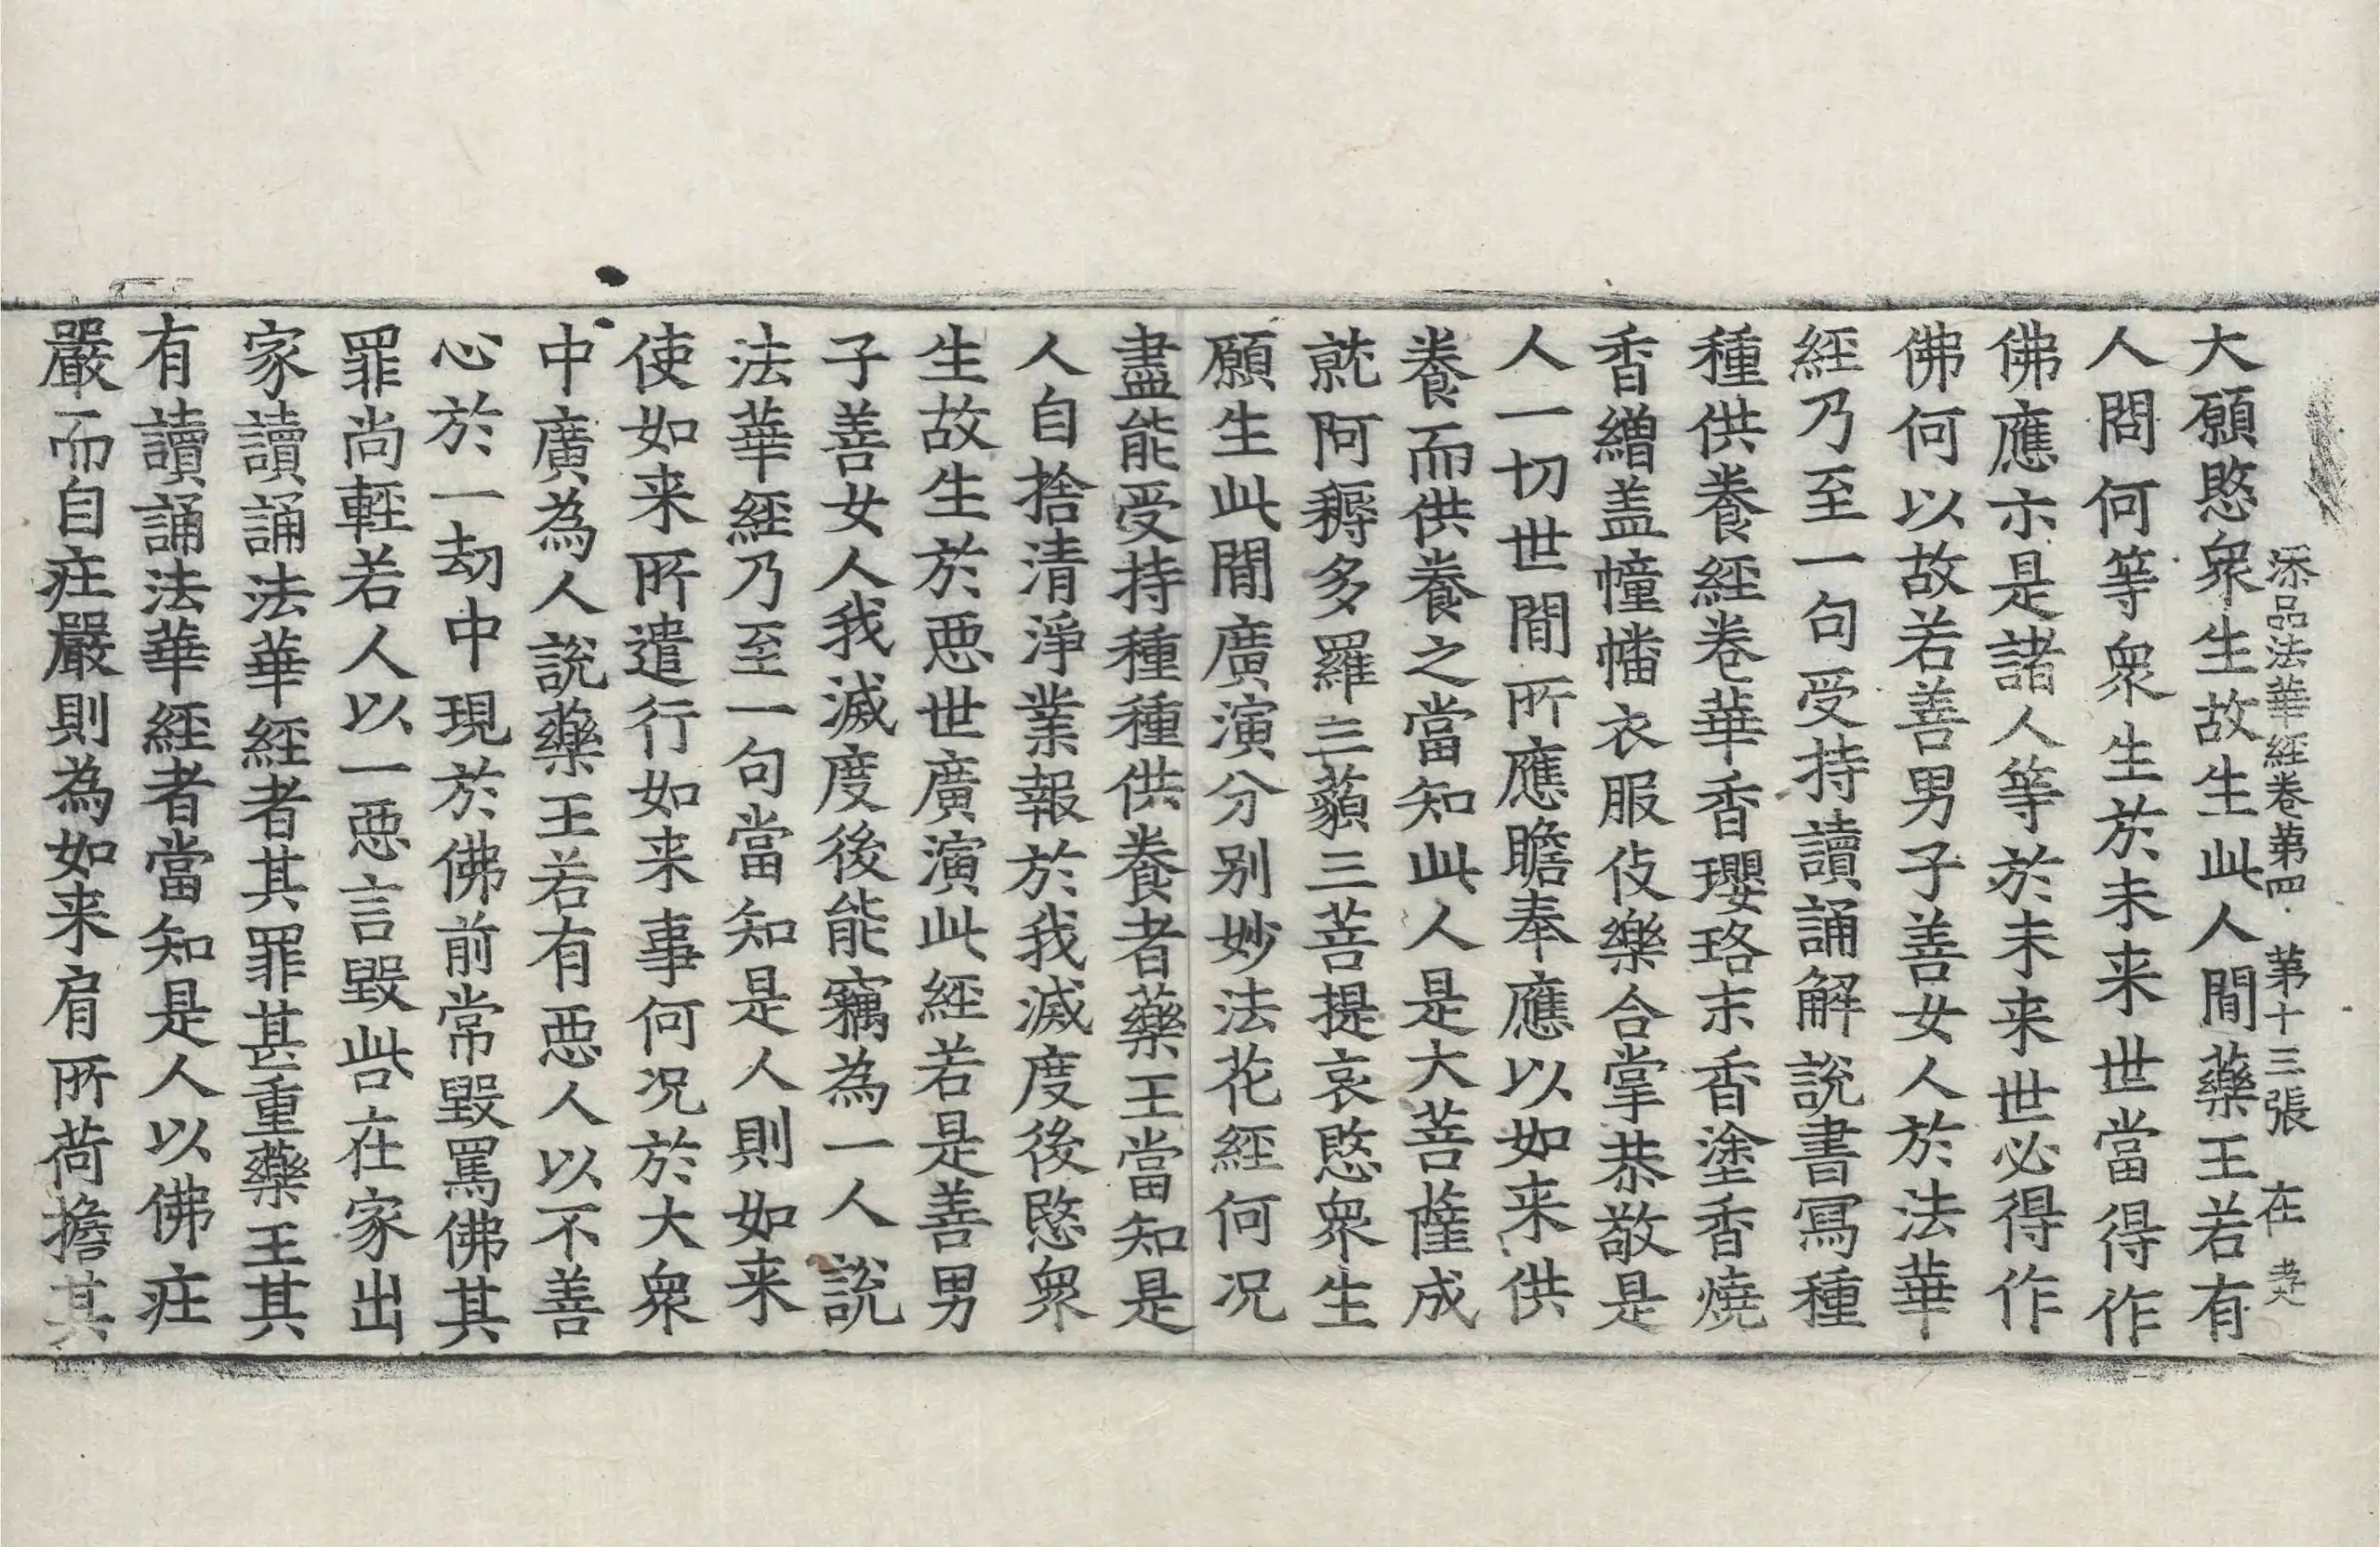 添品法華經卷第四 第十三張 在
大願愍衆生故生此人閒藥王若有
人問何等衆生於未来世當得作
佛應示是諸人等於未来世必得作
佛何以故若善男子善女人於法華
經乃至一句受持讀誦解說書寫種
種供養經卷華香瓔珞末香塗香燒
香繒盖幢幡衣服伎樂合掌恭敬是
人一切世閒所應瞻奉應以如来供
養而供養之當知此人是大菩薩成
就阿耨多羅三藐三菩提哀愍衆生
願生此閒廣演分别妙法花經何况
盡能受持種種供養者藥王當知是
人自捨清淨業報於我滅度後愍衆
生故生於惡世廣演此經若是善男
子善女人我滅度後能竊為一人說
法華經乃至一句當知是人則如来
使如来所遣行如来事何况於大衆
中廣為人說藥王若有惡人以不善
心於一劫中現於佛前常毀罵佛其
罪尚輕若人以一惡言毀呰在家出
家讀誦法華經者其罪甚重藥王其
有讀誦法華經者當知是人以佛庄
嚴而自庄嚴則為如来肩所荷擔其